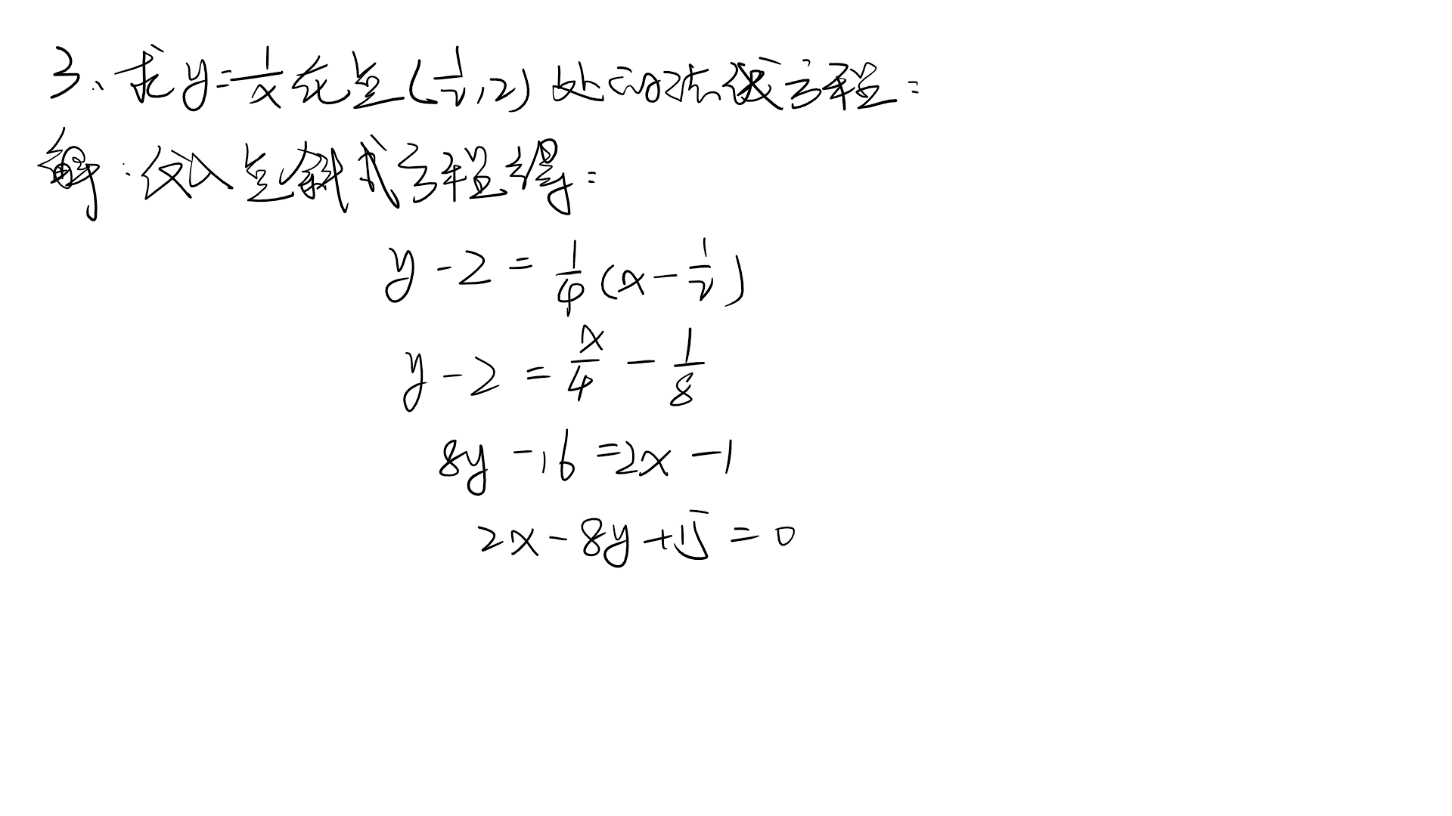 3、求y=1/x在点(1/2,2)处的法线方程:
解:代入点斜式方程得:
y-2=1/4(x-1/2)
y-2=x/4-1/8
8y-16=2x-1
2x-8y+15=0